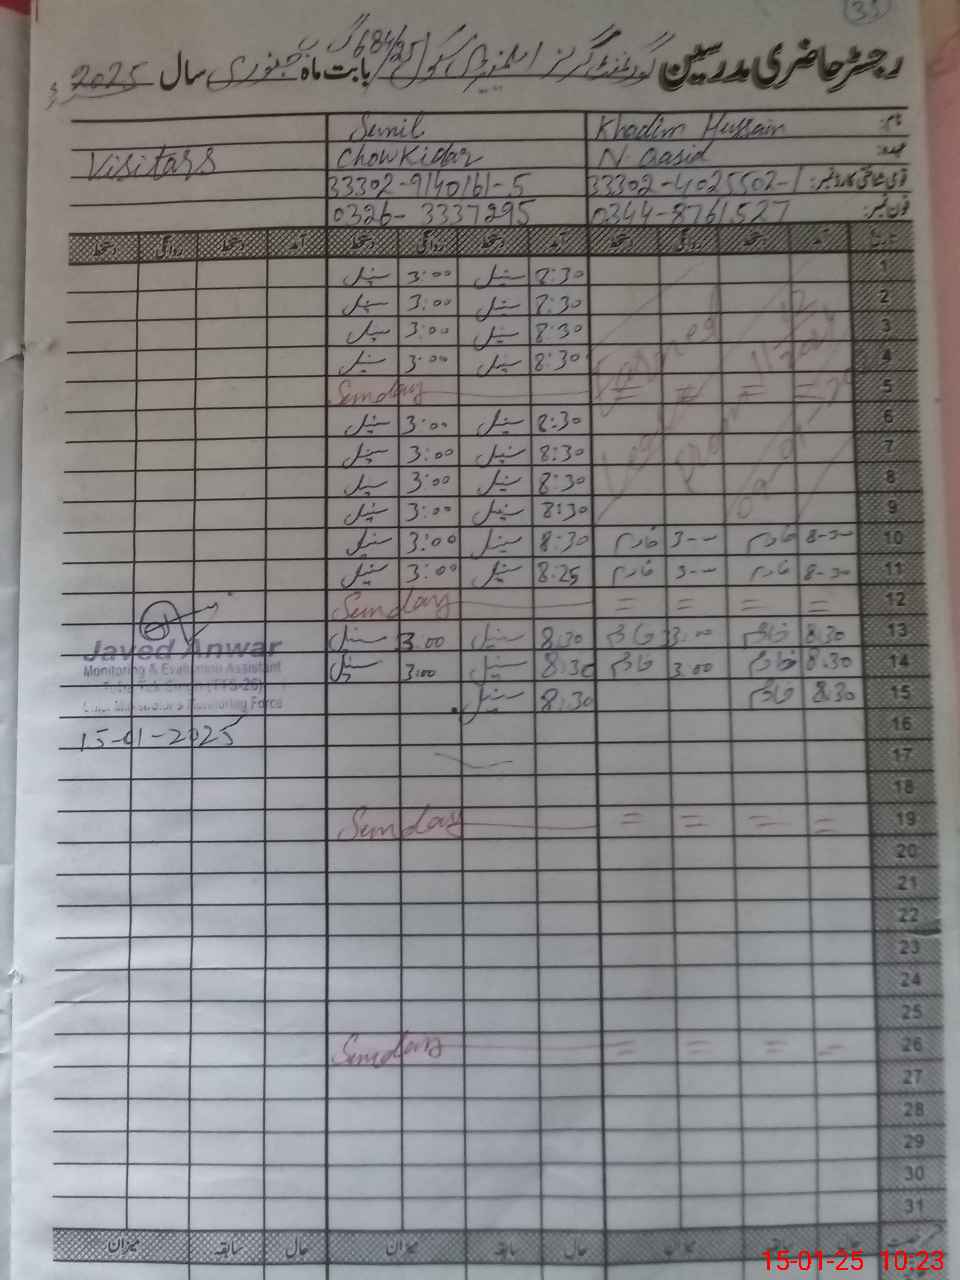 33
رجسٹر حاضری مدرسین گورنمنٹ گرلز ایلیمنٹری سکول 684/25 گ ب بابت ماہ جنوری سال 2025ء
نام: Khadim Hussain Sunil
عہدہ: N. Qasid Chowkidar Visitars
قومی شناختی کارڈ نمبر: 33302-4025502-1 33302-9140161-5
فون نمبر: 0344-8761527 0326-3337295
تاریخ آمد دستخط روانگی دستخط آمد دستخط روانگی دستخط آمد دستخط روانگی دستخط
1 8:30 سنیل 3:00 سنیل
2 8:30 سنیل 3:00 سنیل
3 8:30 سنیل 3:00 سنیل
4 8:30 سنیل 3:00 سنیل
5 = = = = Sunday
6 8:30 سنیل 3:00 سنیل
7 8:30 سنیل 3:00 سنیل
8 8:30 سنیل 3:00 سنیل
9 8:30 سنیل 3:00 سنیل
Leave From
10 8-30 خادم 3-00 خادم 8:30 سنیل 3:00 سنیل
11 8-30 خادم 3-00 خادم 8:25 سنیل 3:00 سنیل
12 = = = = Sunday
13 8:30 خادم 3:00 خادم 8:30 سنیل 3:00 سنیل
14 8:30 خادم 3:00 خادم 8:30 سنیل 3:00 سنیل
15 8:30 خادم 8:30 سنیل
Javed Anwar
Monitoring & Evaluation Assistant
Toba Tek Singh (TTS-26)
Chief Minister's Monitoring Force
15-01-2025
16
17
18
19 = = = = Sunday
20
21
22
23
24
25
26 = = = = Sunday
27
28
29
30
31
حال سابقہ میزان حال سابقہ میزان حال سابقہ میزان
15-01-25 10:23